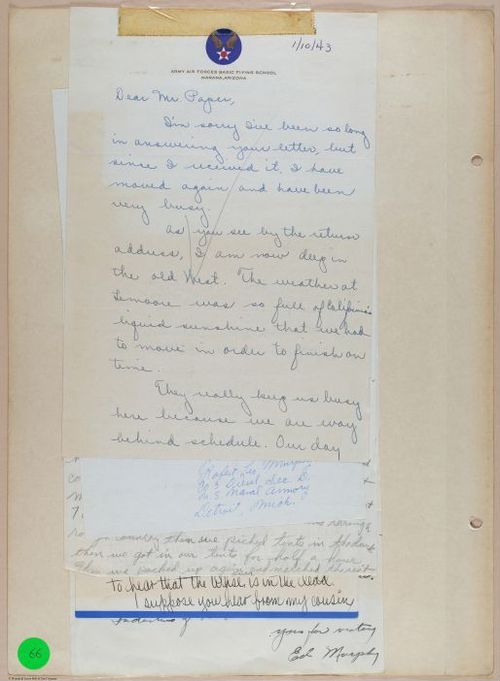 1/10/43
ARMY AIR FORCES BASIC FLYING SCHOOL
MARANA, ARIZONA
Dear Mr. Paper,
I'm sorry I've been so long
in answering your letter, but
since I received it, I have
moved again and have been
very busy.
As you see by the return
address, I am now deep in
the old West. The weather at
Lemoore was so full of California's
liquid sunshine that we had
to move in order to finish on
time.
They really keep us busy
here because we are way
behind schedule. Our day
Robert Murphy
Sec. D.
U.S. Naval Armory
Detroit, Mich.
country then we piched tents in the
then we got in our tents for half a hour
then we packed up again and
to hear that the Whse is in the lead
I suppose you hear from my cousin
yours for victory
Ed Murphy
66